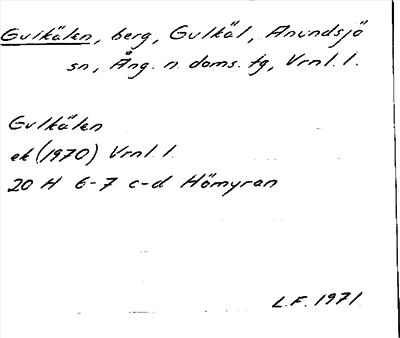 Gulkälen, berg, Gulkäl, Anundsjö
sn, Ång. n. doms. tg, Vrnl. l.
Gulkälen
ek (1970) Vrnl. l.
20 H 6-7 c-d Hömyran
L.F. 1971